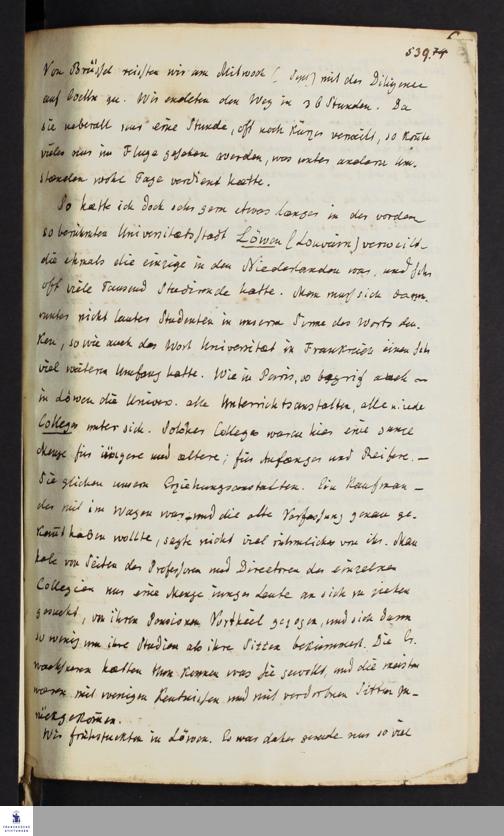 539. 74
Von Brüssel reisten wir am Mitwoch ( Sept) mit der Diligence
auf Coelln zu. Wir endeten den Weg in 36 Stunden. Da
sie ueberall nur eine Stunde, oft noch kürzer verweilt, so konte
vieles nur im Fluge gesehen werden, was unter andern Um-
staenden wohl Tage verdient haette.
So haette ich doch sehr gern etwas laenger in der vordem
so berühmten Universitaetsstadt Löwen (Louvain) verweilt,
die ehmals die einzige in den Niederlanden war, und sehr
oft viele Tausend Studirende hatte. Man muss sich darun-
runter nicht lauter Studenten in unserm Sinne des Worts den-
ken, so wie auch das Wort Universitaet in Frankreich einen sehr
viel weitern Umfang hatte. Wie in Paris, so begrif auch —
in Löwen die Univers. alle Unterrichtsanstalten, alle niede
Colleges unter sich. Solcher Colleges waren hier eine ganze
Menge für jüngere und aeltere; für Anfaenger und Reifere. —
Sie glichen unsern Erziehungsanstalten. Ein Kaufman —
der mit im Wagen war und die alte Verfassung genau ge-
kannt haben wollte, sagte nicht viel rühmliches von ihr. Man
habe von Seiten der Professoren und Directoren der einzelnen
Collegien nur eine Menge junger Leute an sich zu ziehen
gesucht, von ihren Pensionen Vortheil gezogen, und sich dann
so wenig um ihre Studien als ihre Sitten bekümmert. Die Er-
wachsenen haetten thun können was sie gewollt, und die meisten
waeren mit wenigen Kentnissen und mit verdorbnen Sitten zu-
rückgekommen.
Wir frühstückten in Löwen. Es war daher gerade nur so viel
FRANCKESCHE STIFTUNGEN